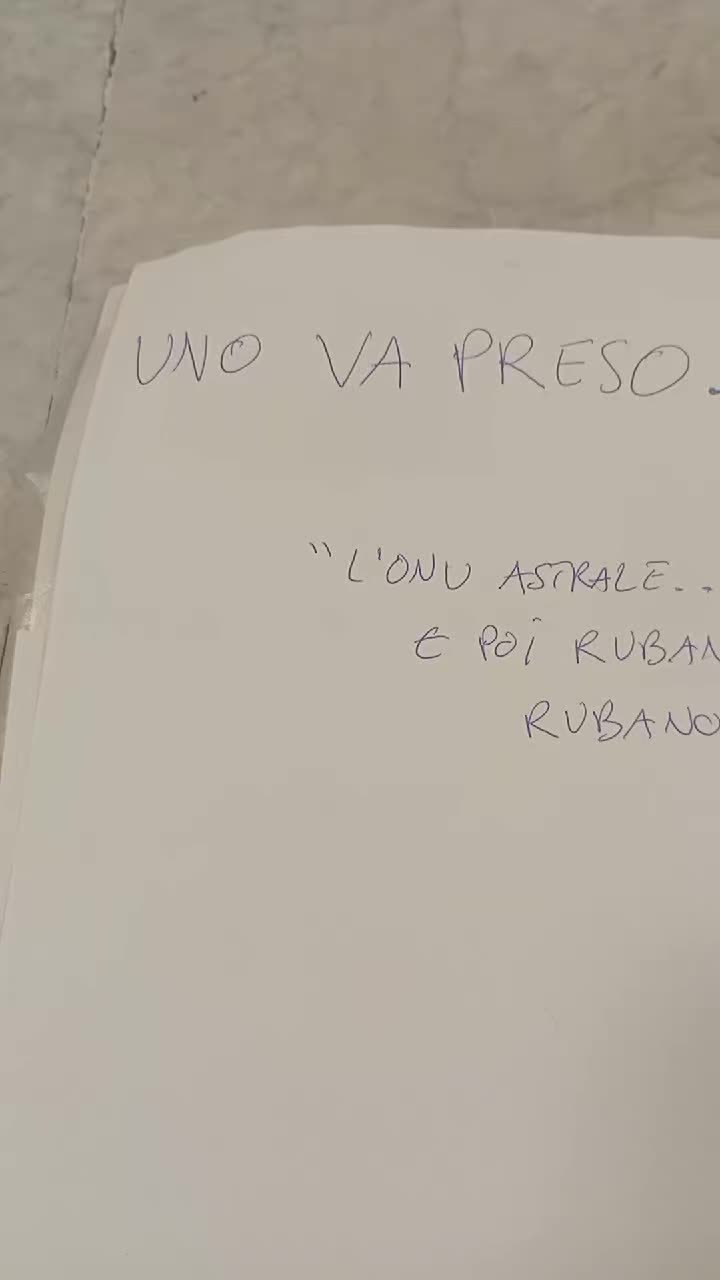 UNO VA PRESO.
"L'ONU ASTRALE..
E POI RUBAN
RUBANO